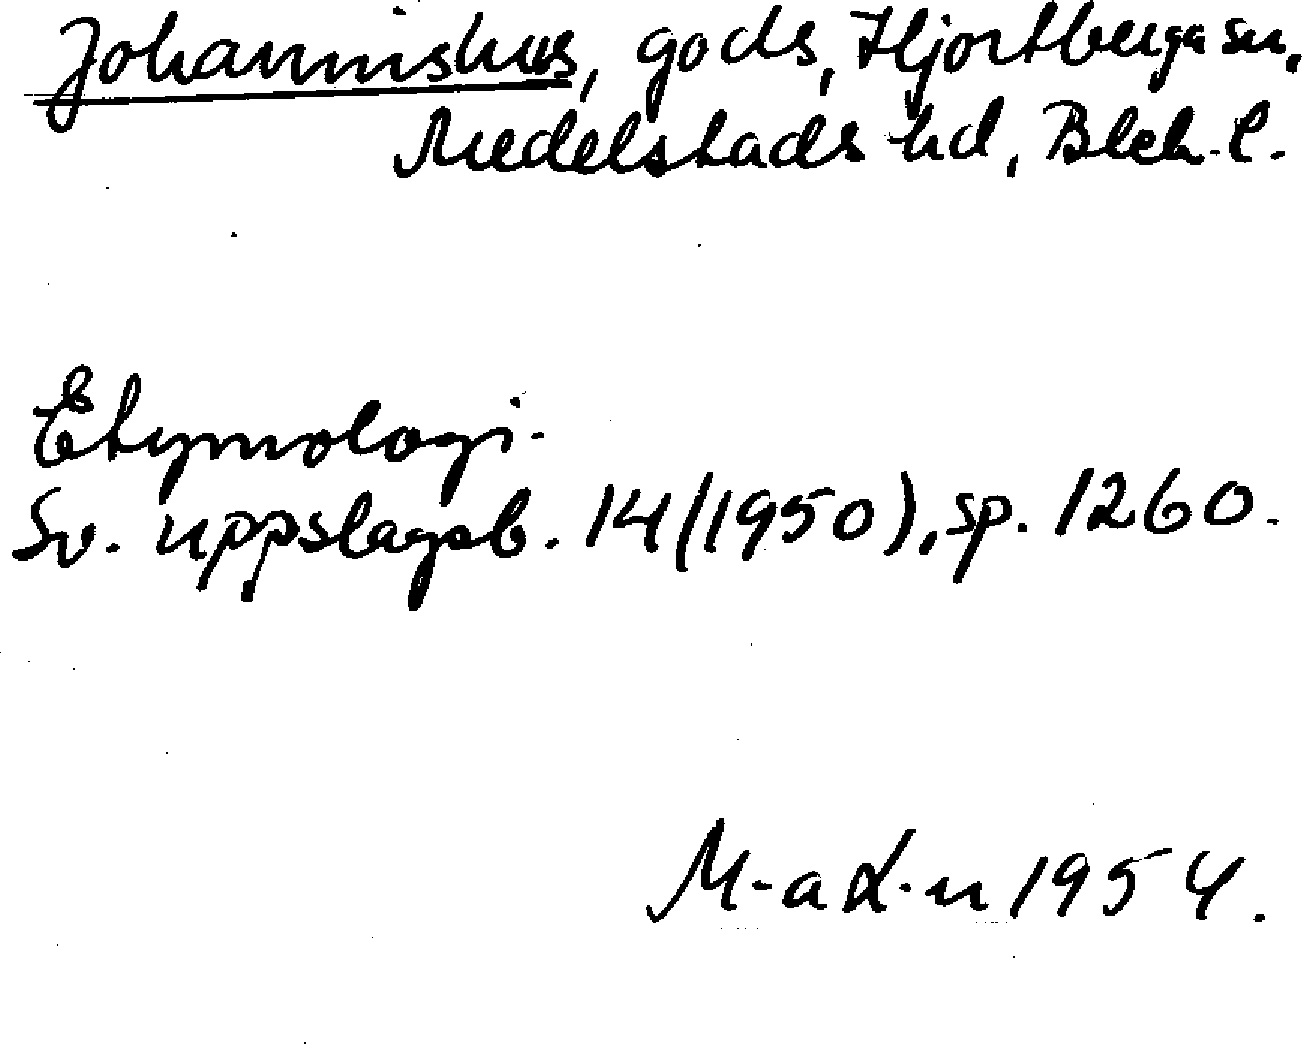 Johannishus, gods, Hjortberga sn,
Medelstads hd, Blek. l.
Etymologi.
Sv. uppslagsb. 14 (1950), sp. 1260.
1954.